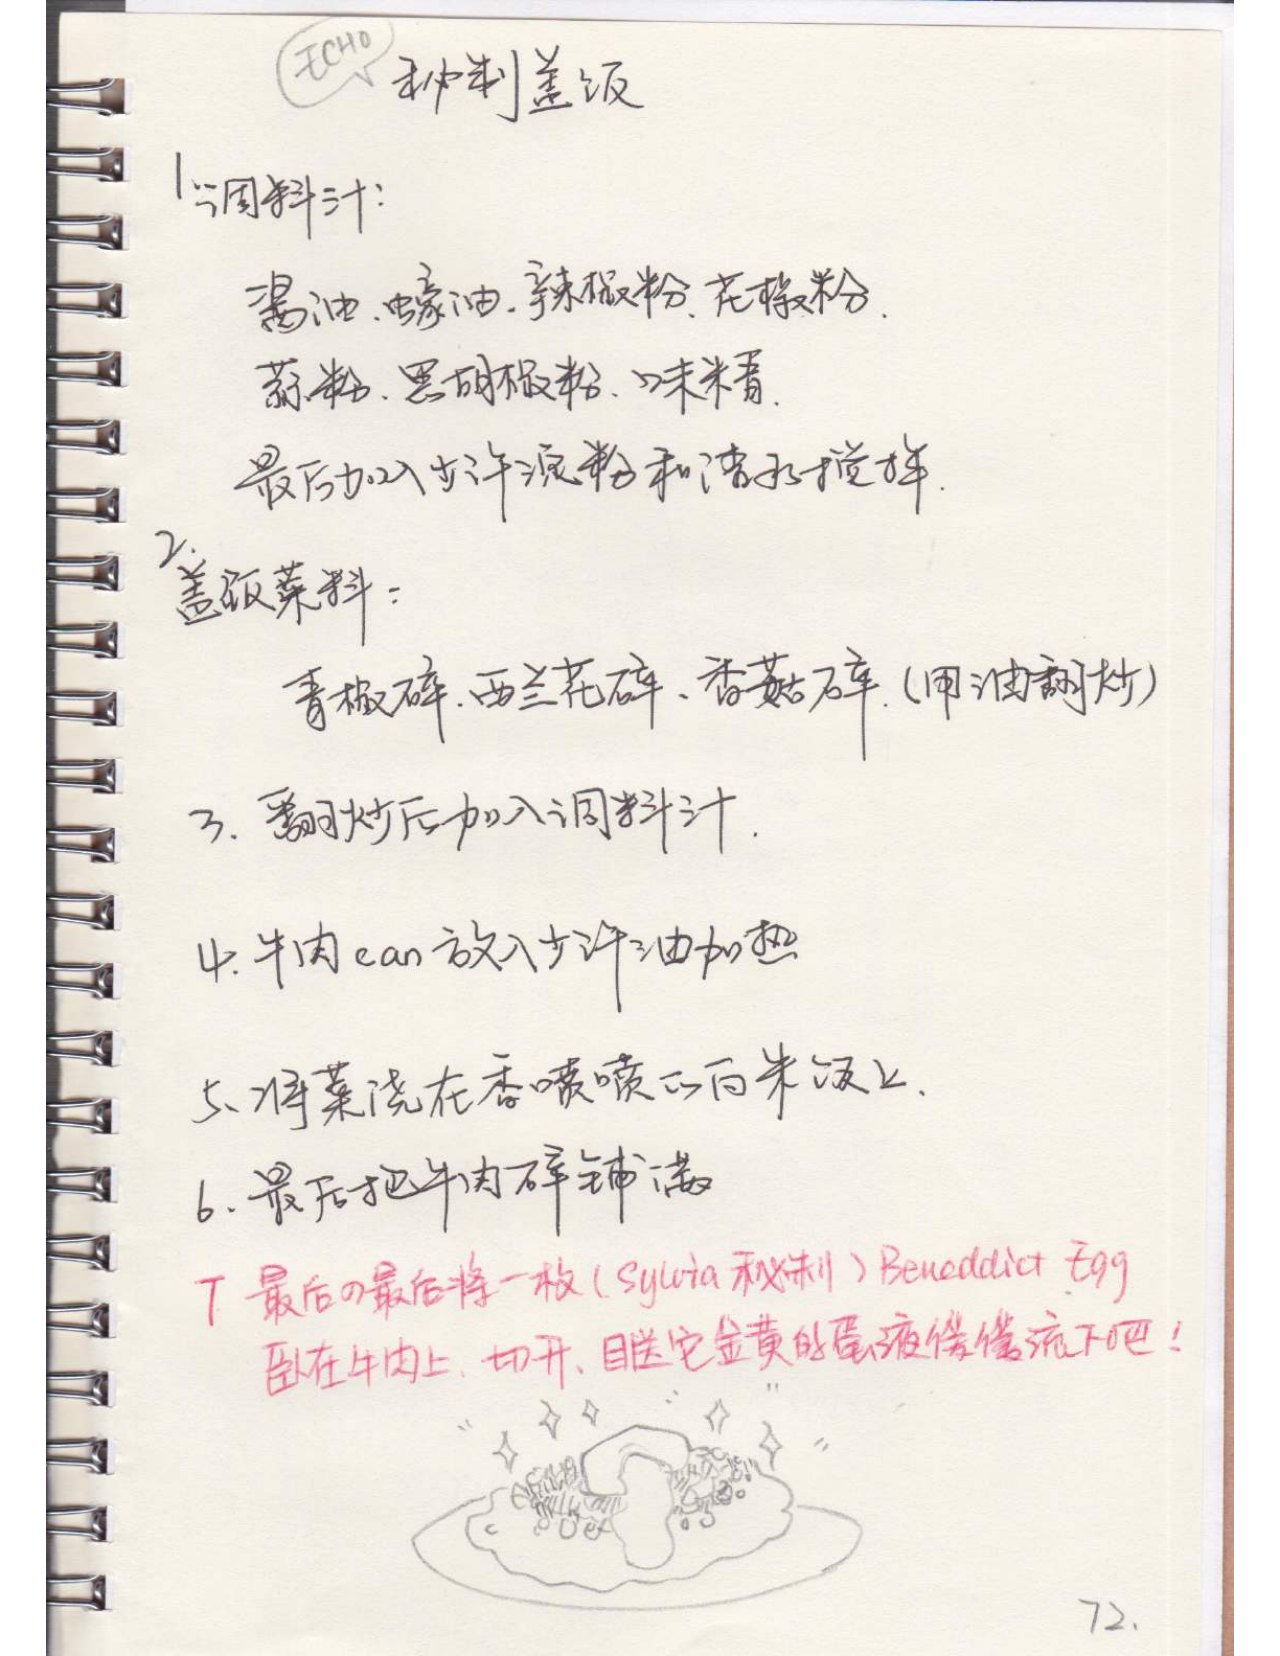 ECHO
秘制盖饭
1、调料汁：
酱油、蚝油、辣椒粉、花椒粉、
蒜粉、黑胡椒粉、味精.
最后加入少许淀粉和清水搅拌.
2.
盖饭菜料：
青椒碎、西兰花碎、香菇碎.（用油翻炒）
3. 翻炒后加入调料汁.
4. 牛肉can放入少许油加热
5、将菜浇在香喷喷的白米饭上.
6. 最后把牛肉碎铺满
7 最后の最后将一枚（Sylvia秘制）Beneddict Egg
卧在牛肉上、切开、目送它金黄的蛋液偻偻流下吧！
72.